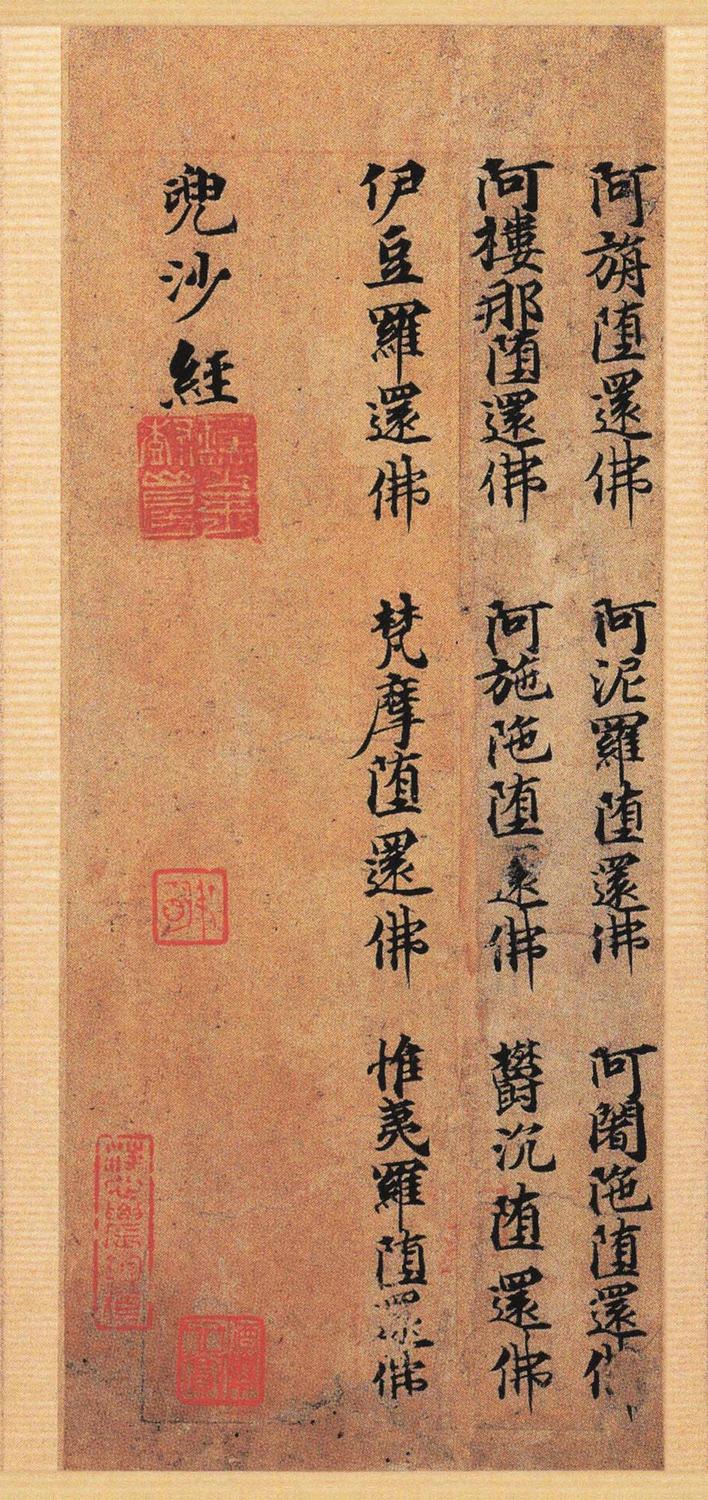 阿旃堕還佛 阿泥羅堕還佛 阿闍陁堕還佛
阿樓那堕還佛 阿施陁堕還佛 欝沉堕還佛
伊豆羅還佛 梵摩堕還佛 惟夷羅堕還佛
兜沙經